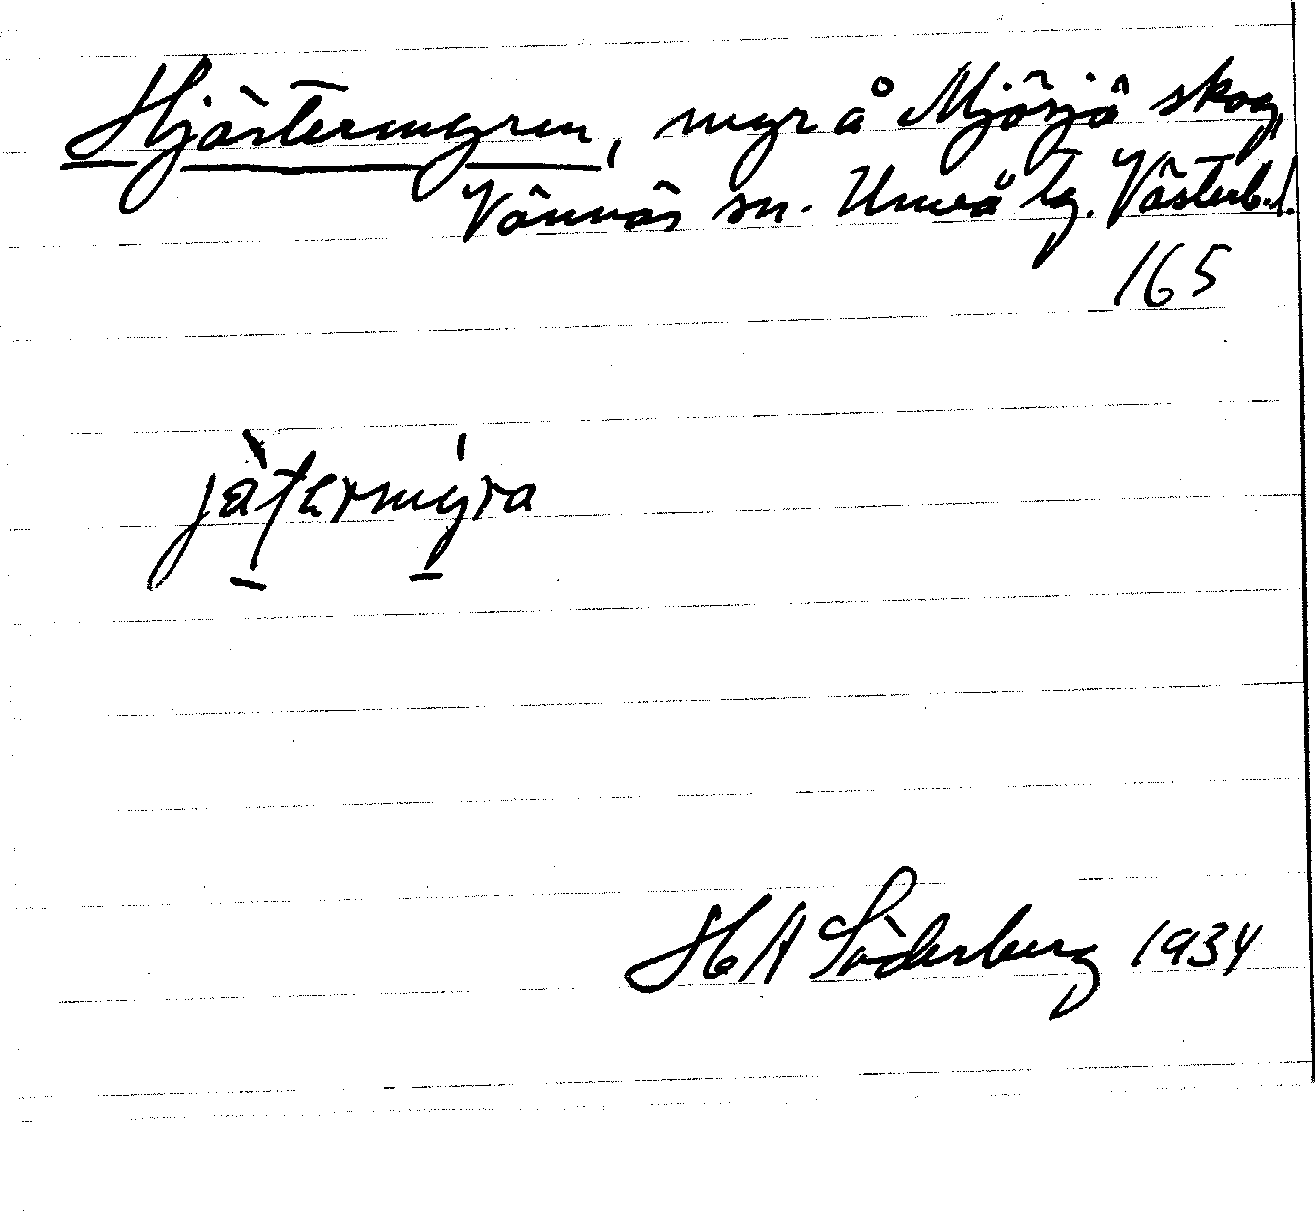 Hjästermyren, myr å Mjösjö skog,
Vännäs sn. Umeå tg. Västerb.l.
165
H A Söderberg 1934